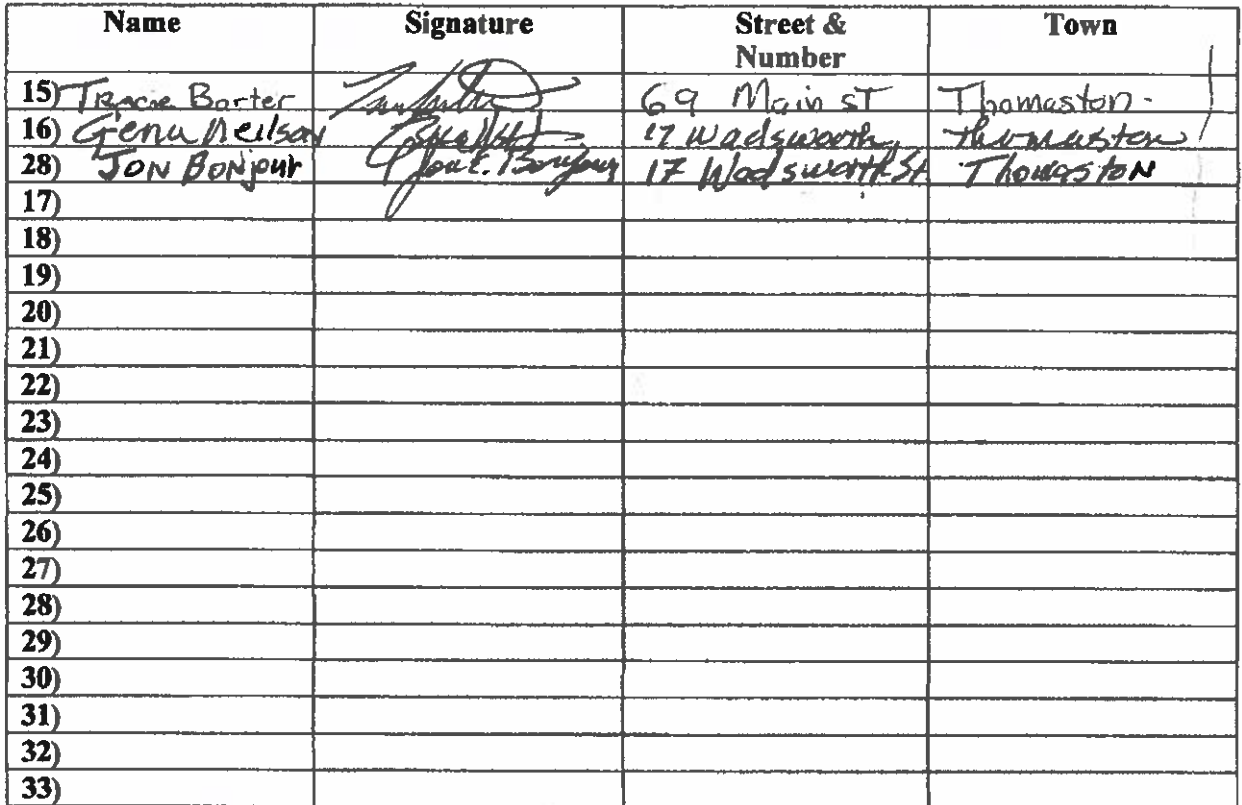 Name Signature Street & Town
Number
15) Tracie Barter 69 Main ST Thomaston
16) Gena Neilson 17 Wadsworth thomaston
28) JON BONjour Jon E. Bonjour 17 Wadsworth St Thomaston
17)
18)
19)
20)
21)
22)
23)
24)
25)
26)
27)
28)
29)
30)
31)
32)
33)